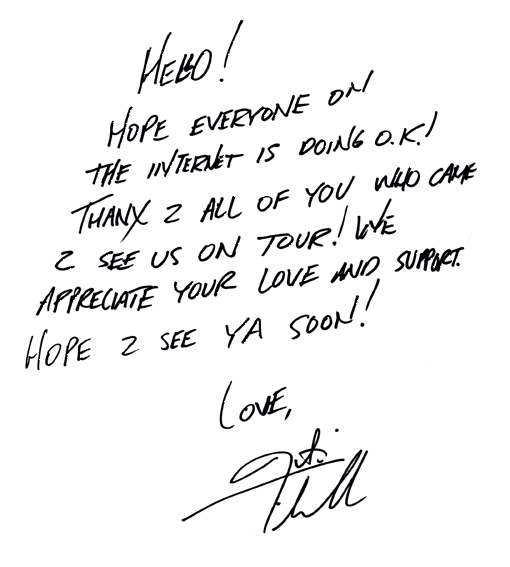 HELLO!
HOPE EVERYONE ON
THE INTERNET IS DOING O.K.!
THANX 2 ALL OF YOU WHO CAME
2 SEE US ON TOUR! WE
APPRECIATE YOUR LOVE AND SUPPORT.
HOPE 2 SEE YA SOON!
LOVE,